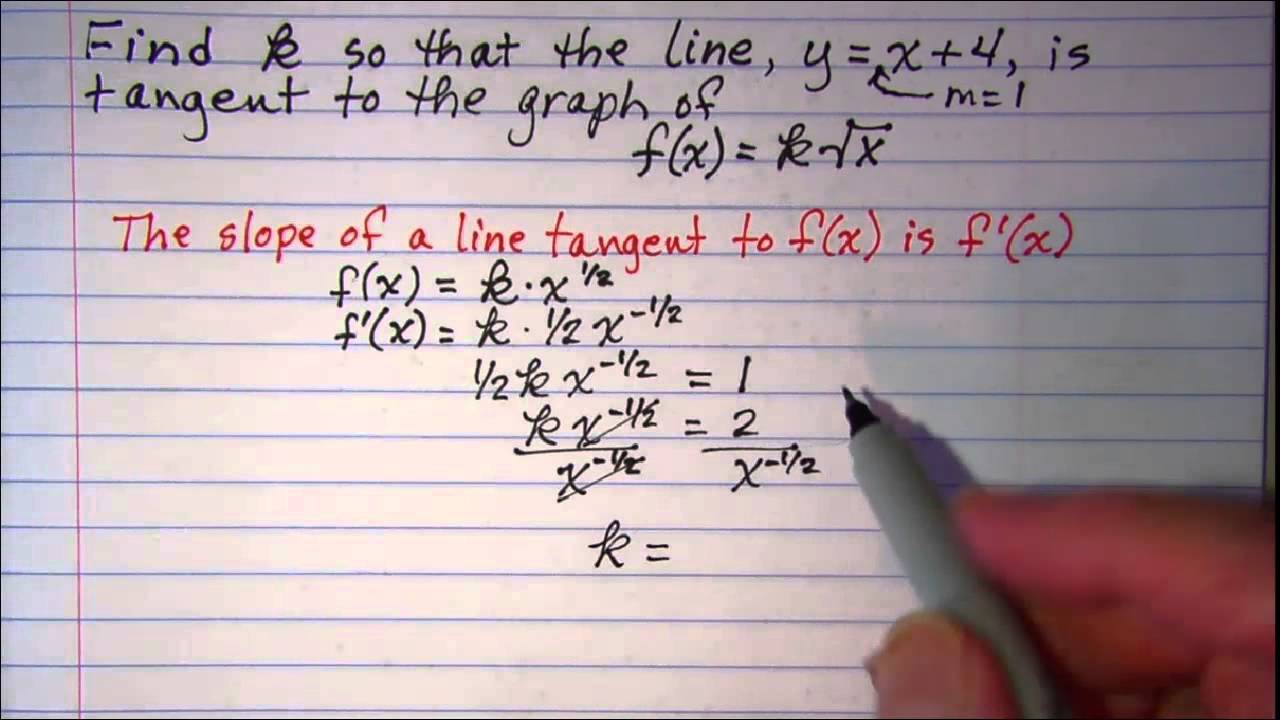 Find k so that the line, y = x + 4, is
tangent to the graph of m = 1
f(x) = k√x
The slope of a line tangent to f(x) is f'(x)
f(x) = k · x^1/2
f'(x) = k · 1/2 x^-1/2
1/2 k x^-1/2 = 1
k x^-1/2 = 2
x^-1/2 x^-1/2
k =